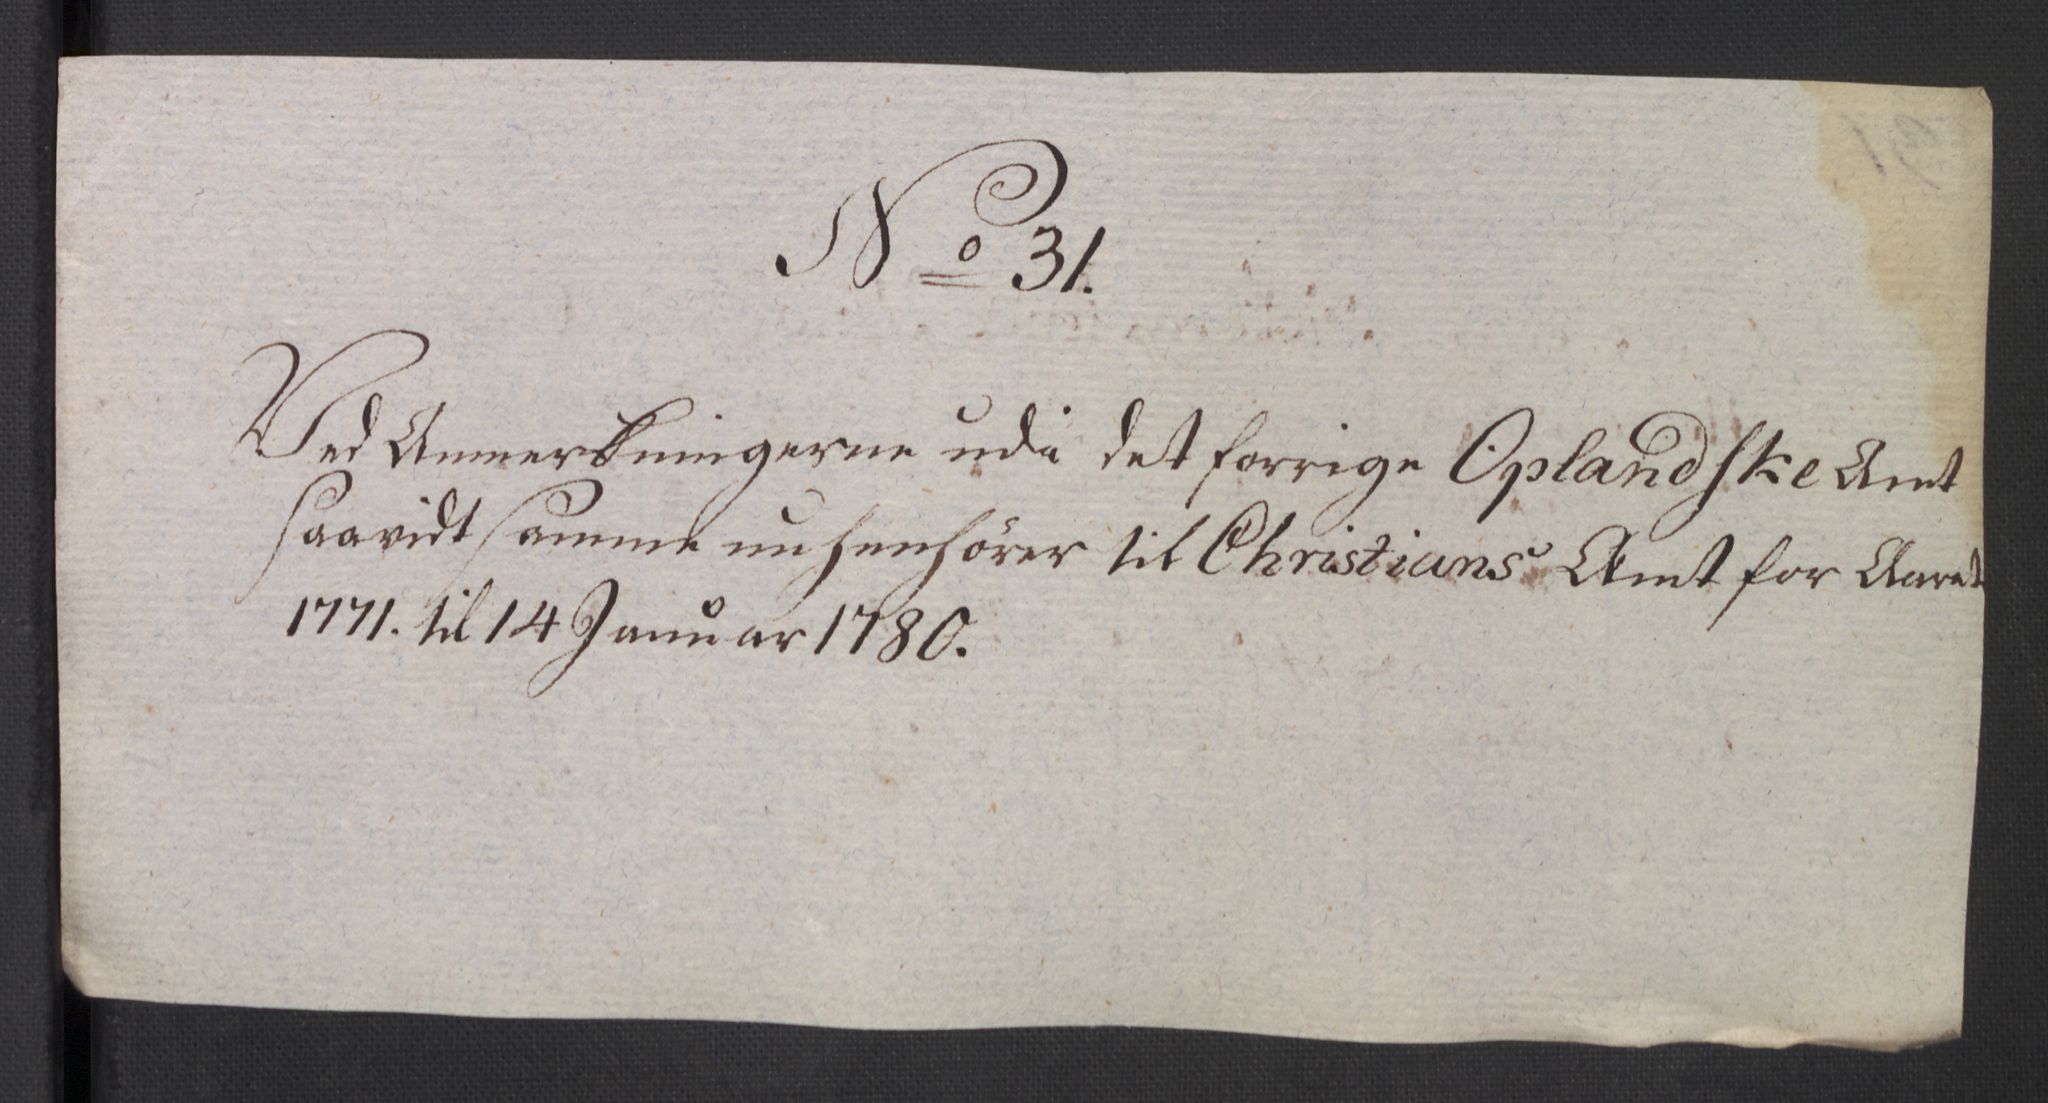 No 31.
Ved Anmerkningerne udi det forrige Oplandske Amt
saavidt samme nu henhörer til Christians Amt for Aaret
1771. til 14 Januar 1780.